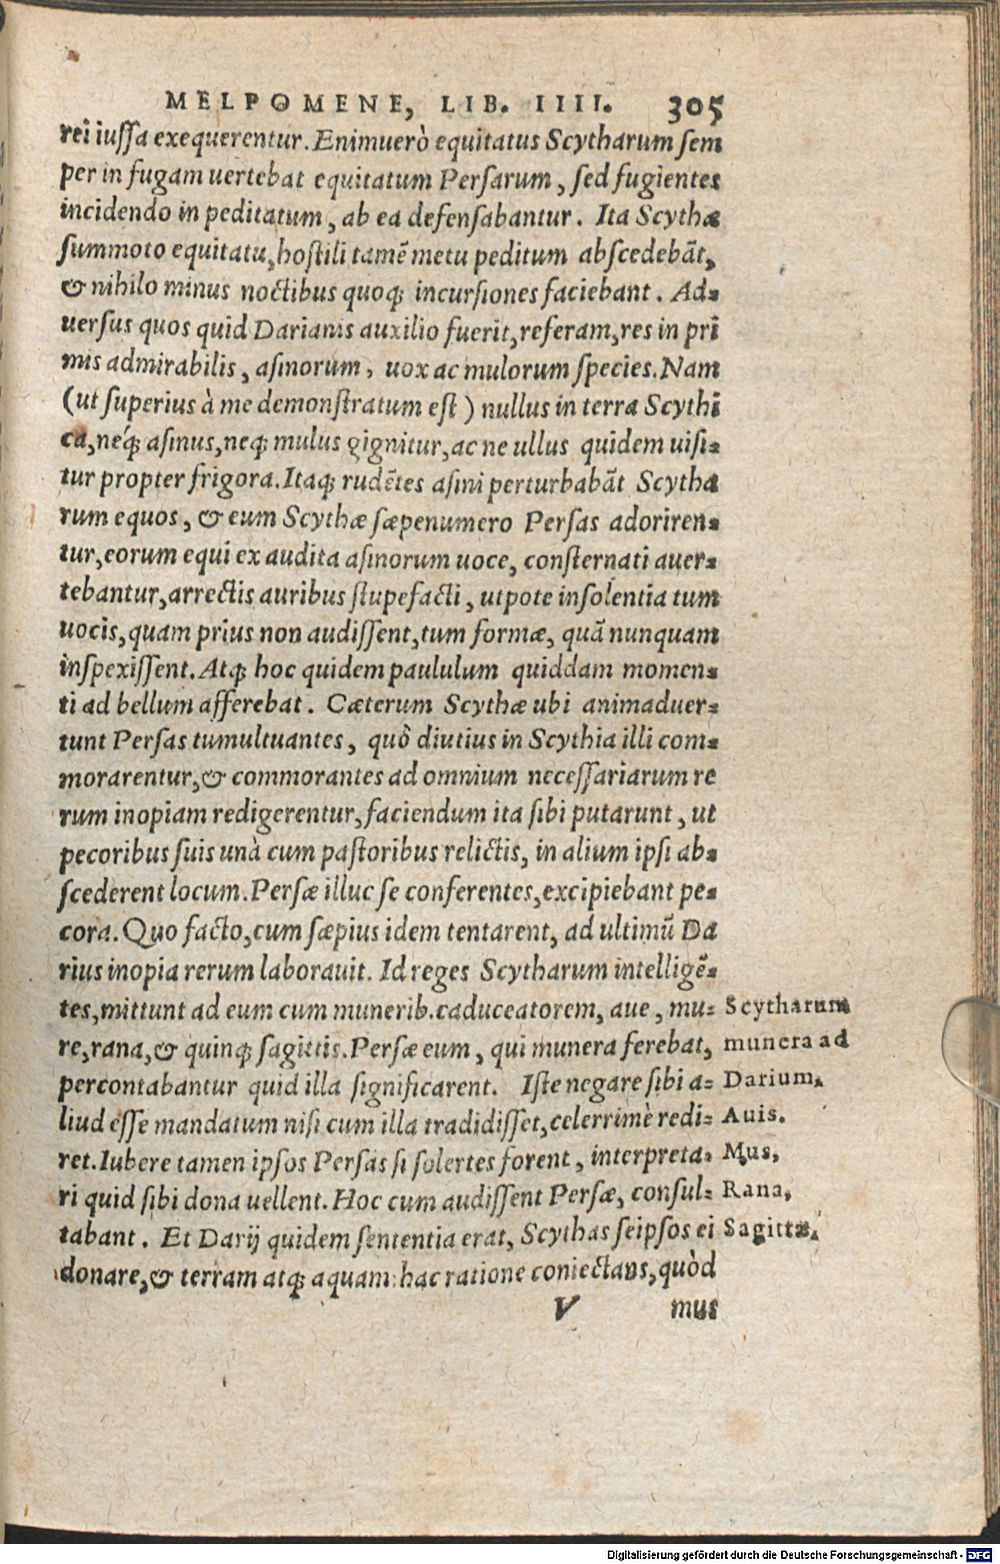 MELPOMENE, LIB. IIII. 305
rei iussa exequerentur. Enimuerò equitatus Scytharum sem
per in fugam uertebat equitatum Persarum, sed fugientes
incidendo in peditatum, ab ea defensabantur. Ita Scythæ
summoto equitatu, hostili tamẽ metu peditum abscedebãt,
& nihilo minus noctibus quoq; incursiones faciebant. Ad=
uersus quos quid Darianis auxilio fuerit, referam, res in pri
mis admirabilis, asinorum, uox ac mulorum species. Nam
(ut superius à me demonstratum est) nullus in terra Scythi
ca, neq́; asinus, neq; mulus gignitur, ac ne ullus quidem uisi=
tur propter frigora. Itaq; rudẽtes asini perturbabãt Scytha
rum equos, & cum Scythæ sæpenumero Persas adoriren=
tur, eorum equi exaudita asinorum uoce, consternati auer=
tebantur, arrectis auribus stupefacti, utpote insolentia tum
uocis, quam prius non audissent, tum formæ, quã nunquam
inspexissent. Atq; hoc quidem paululum quiddam momen=
ti ad bellum afferebat. Cæterum Scythæ ubi animaduer=
tunt Persas tumultuantes, quò diutius in Scythia illi com=
morarentur, & commorantes ad omnium necessariarum re
rum inopiam redigerentur, faciendum ita sibi putarunt, ut
pecoribus suis unà cum pastoribus relictis, in alium ipsi ab=
scederent locum. Persæ illuc se conferentes, excipiebant pe=
cora. Quo facto, cum sæpius idem tentarent, ad ultimũ Da
rius inopia rerum laborauit. Id reges Scytharum intelligẽ=
tes, mittunt ad eum cum munerib. caduceatorem, aue, mu= Scytharum
re, rana, & quinq; sagittis. Persæ eum, qui munera ferebat, munera ad
percontabantur quid illa significarent. Iste negare sibi a= Darium.
liud esse mandatum nisi cum illa tradidisset, celerrimè redi= Auis.
ret. Iubere tamen ipsos Persas si solertes forent, interpreta= Mus,
ri quid sibi dona uellent. Hoc cum audissent Persæ, consul= Rana,
tabant. Et Darij quidem sententia erat, Scythas seipsos ei Sagittæ.
donare, & terram atq; aquam: hac ratione coniectans, quòd
V mus
Digitalisierung gefördert durch die Deutsche Forschungsgemeinschaft - DFG